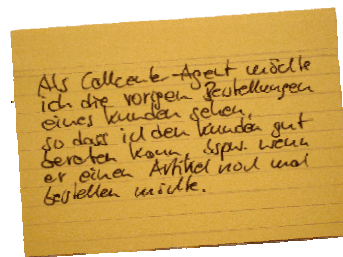 Als Callcenter-Agent möchte
ich die vorigen Bestellungen
eines Kunden sehen,
so dass ich den Kunden gut
beraten kann, bspw. wenn
er einen Artikel noch mal
bestellen möchte.